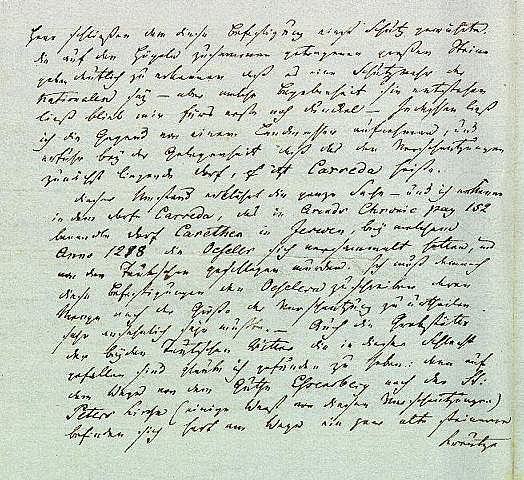 schließen daß diese Befestigung einst Schutz gewährte.
die auf den Hügeln zusammen getragenen großen Steine
geben deutlich zu erkennen daß es eine Schutzwehr der
Nationalen sey – aber welche Begebenheit sie entstehen
ließ blieb mir fürs erste noch dunkel – Indessen ließ
ich die Gegend von einem Landmesser aufnehmen, und
erfuhr bey der Gelegenheit daß das den Verschantzungen
zunächst liegende Dorf, Carreda heiße.
dieser Umstand erklärt die ganze Sache – und ich erkenne
in dem Dorf Carreda, das in Arends Chronic pag 152
benandte Dorf Carethen in Jerwen, bey welchem
Anno 1278 die Oeseller sich versammelt hatten, und
von den Teutschen geschlagen wurden. Ich muß demnach
diese Befestigungen den Oesellern zuschreiben deren
Menge nach der Größe der Verschantzung zu urtheilen
sehr ansehnlich seyn mußte. – Auch die Grabstäter
der beyden Teutschen Ritter die in dieser Schlacht
gefallen sind glaube ich gefunden zu haben: denn auf
dem Wege von dem Guthe Eschenberg nach der St:
Peters Kirche (einige Werst von diesen Verschantzungen)
befinden sich hart am Wege ein paar alte steinerne
Kreutze